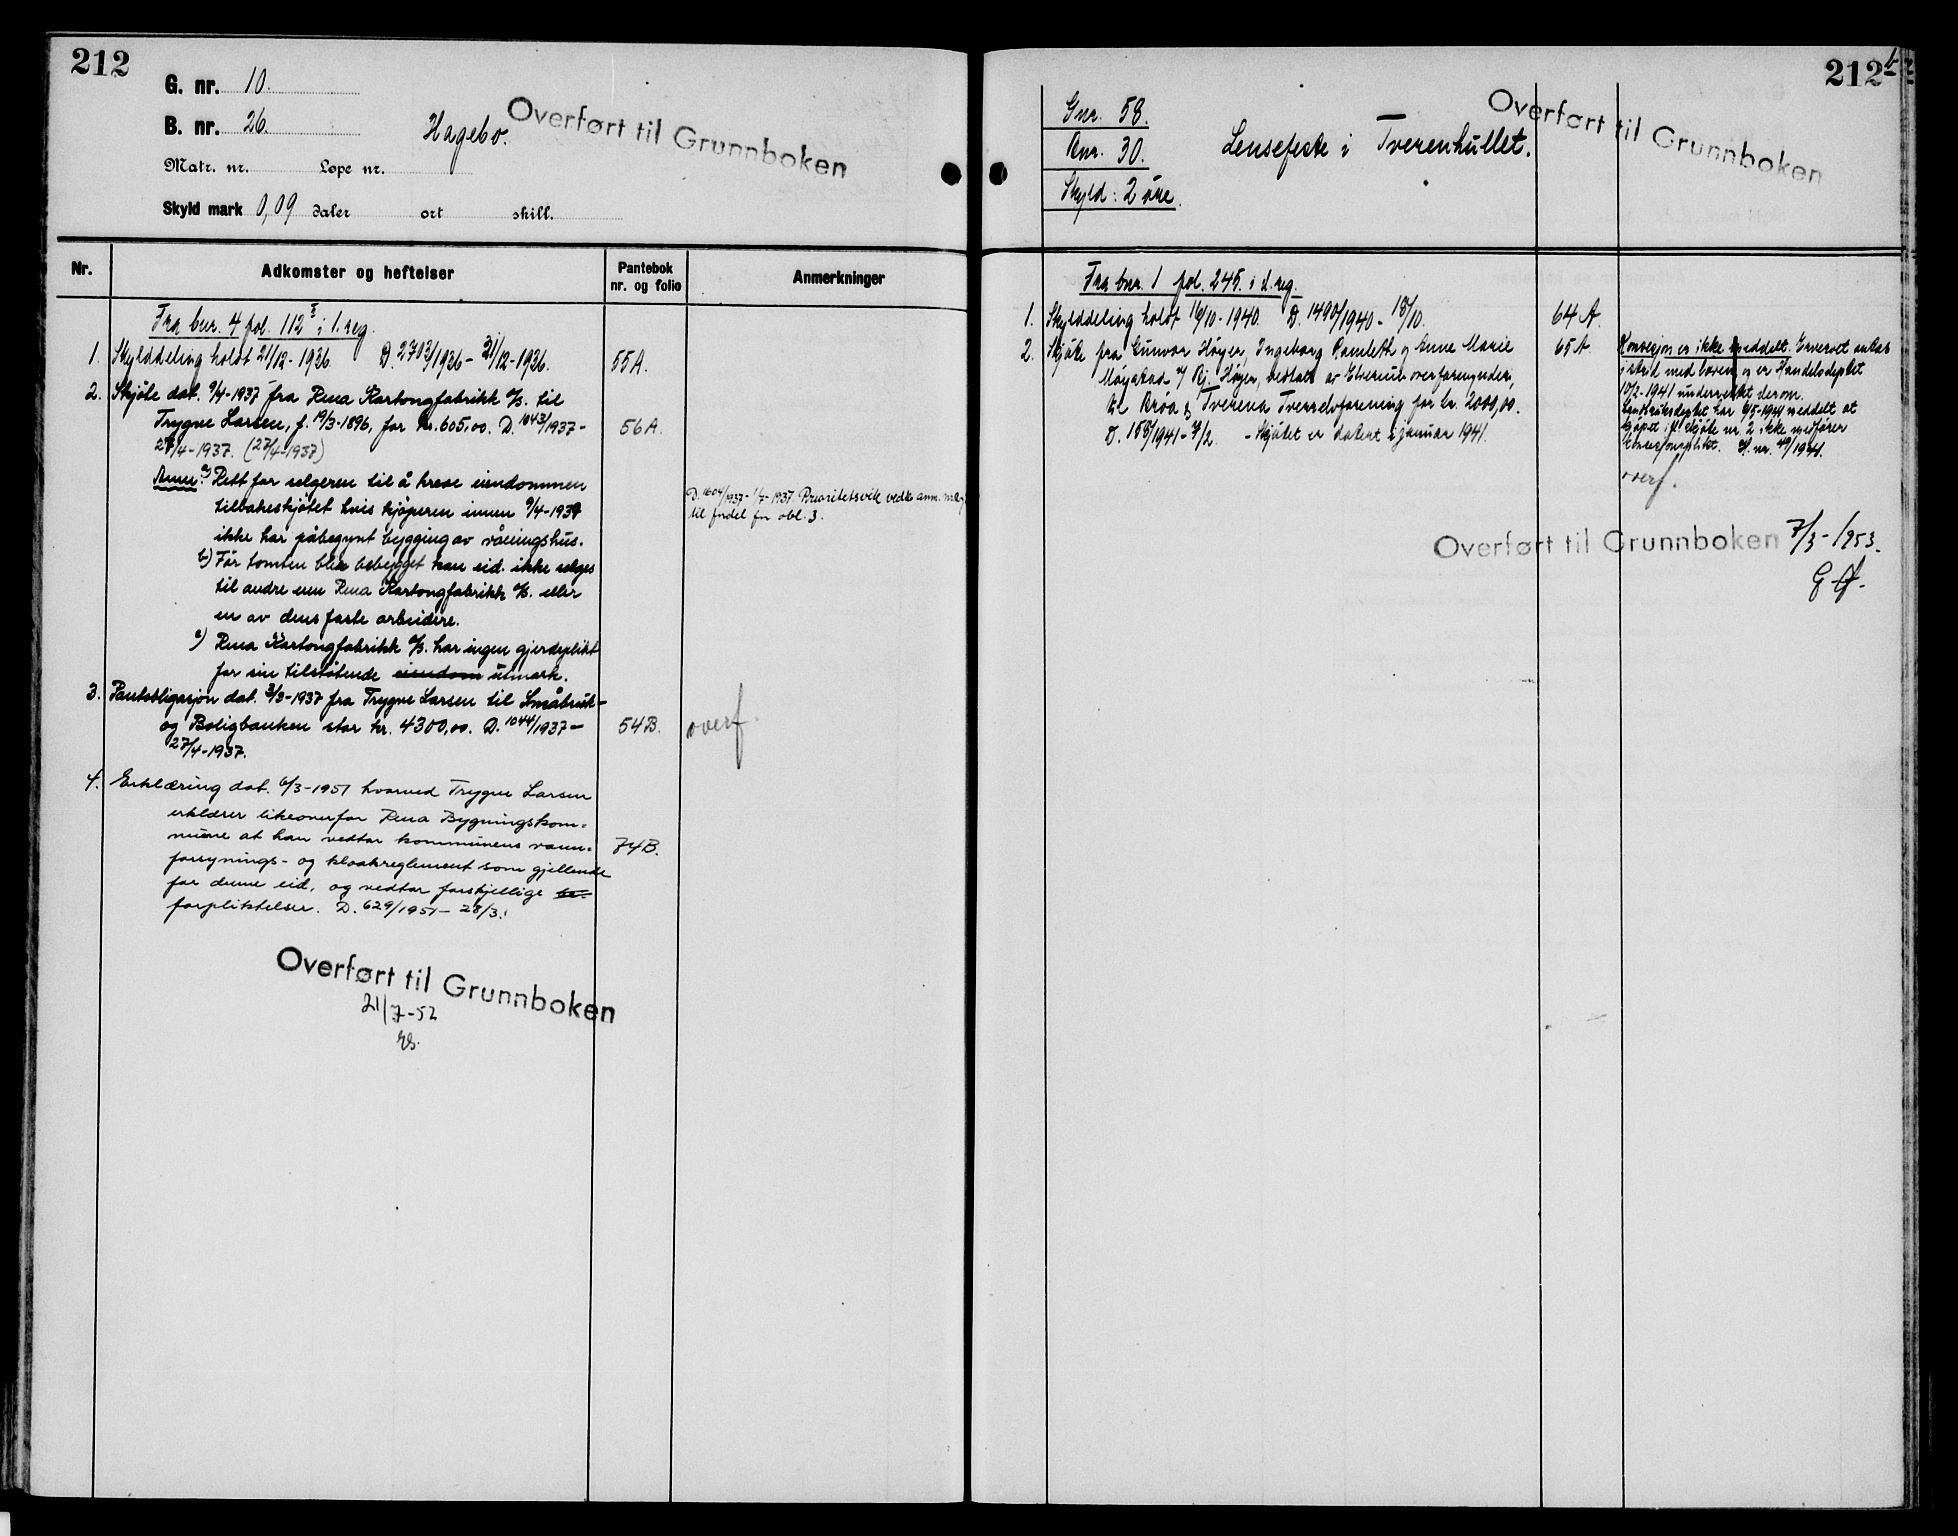 212
G. nr. 10.
B. nr. 26.
Hagebo.
Overført til Grunnboken
Matr. nr. Løpe nr.
Skyld mark 0,09 daler ort skill.
Nr. Adkomster og heftelser Pantebok nr. og folio Anmerkninger
Fra bnr. 4 fol. 112 i 1. reg.
1. Skylddeling holdt 21/12-1936. D. 2703/1936 - 31/12-1936. 55A.
2. Skjöte dat. 9/4-1937 fra Rena Kartongfabrikk A/S. til
Trygve Larsen, f. 19/3-1896, for kr. 605,00. D. 1043/1937- 56A.
27/4-1937. (27/4-1937)
Anm: a) Rett for selgeren til å kreve eiendommen
tilbakeskjötet hvis kjöperen innen 9/4-1939
ikke har påbegynt bygging av våningshus.
D. 1604/1937- 1/7-1937. Prioritetsvik. vedk. anm.
til fordel for obl. 3.
b) Før tomten blir bebygget kan eid. ikke selges
til andre enn Rena Kartongfabrikk A/S. eller
en av dens faste arbeidere.
c) Rena Kartongfabrikk A/S. har ingen gjerdeplikt
for sin tilstötende eiendom utmark.
3. Pantobligasjon dat. 3/3-1937 fra Trygve Larsen til Småbruk-
og Boligbanken stor kr. 4300,00. D. 1044/1937- 54B. overf.
27/4-1937.
4. Erklæring dat. 6/3-1951 hvorved Trygve Larsen
erklærer likeoverfor Rena Bygningskom-
mune at han vedtar kommunens vann- 74B.
forsynings- og kloakreglement som gjellende
for denne eid. og vedtar forskjellige be-
forpliktelser. D. 629/1951 - 28/3.
Overført til Grunnboken
21/7-52
212 b
Gnr. 58.
Bnr. 30.
Skyld: 2 öre.
Lensefeste i Tverenhullet.
Overført til Grunnboken
Fra bnr. 1 fol. 245. i 1. reg.
1. Skylddeling holdt 16/10-1940. D. 1490/1940 - 18/10. 64A.
2. Skjöte fra Gunvor Höyer, Ingeborg Ramleth og Anne Marie 65A.
Höyer, vedtatt av Elverum overformynderi,
til Bröa & Tverena Tverrelvforening for kr. 2000,00.
D. 158/1941 - 4/2. - Skjötet er datert i januar 1941.
Konsesjon er ikke meddelt. Ervervet antas
i strid med loven og er Handelsdeptet
10/2-1941 underrettet derom.
Landbruksdeptet har 6/5-1941 meddelt at
kjöpet i fl. skjöte nr. 2 ikke medfører
konsesjonsplikt. J. nr. 49/1941.
overf.
Overført til Grunnboken 7/3-1953.